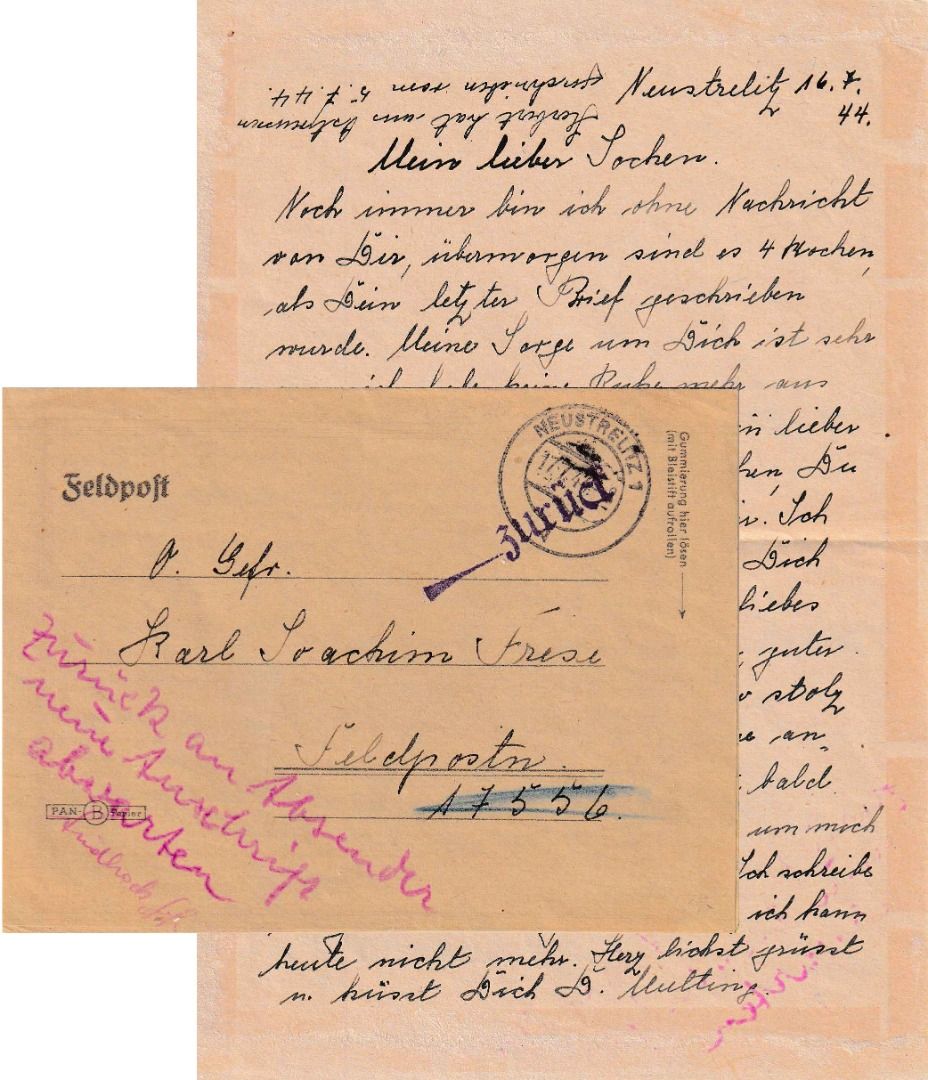 Neustrelitz 16.7.
44.
Herbert hat am
geschrieben vom 5.7.44.
Mein lieber Jochen.
Noch immer bin ich ohne Nachricht
von Dir, übermorgen sind es 4 Wochen,
als Dein letzter Brief geschrieben
wurde. Meine Sorge um Dich ist sehr
ich habe keine Ruhe mehr aus
lieber
Du
Ich
Dich
liebes
guter
stolz
an-
bald
um mich
Ich schreibe
ich kann
heute nicht mehr. Herzlichst grüsst
u. küsst Dich D. Mutting.
Feldpost
NEUSTRELITZ 1
zurück
Gummierung hier lösen
(mit Bleistift aufrollen)
O. Gefr.
Karl Joachim Frese
Feldpostn.
17556.
Zurück an Absender
neue Anschrift
abwarten
PAN-B Papier